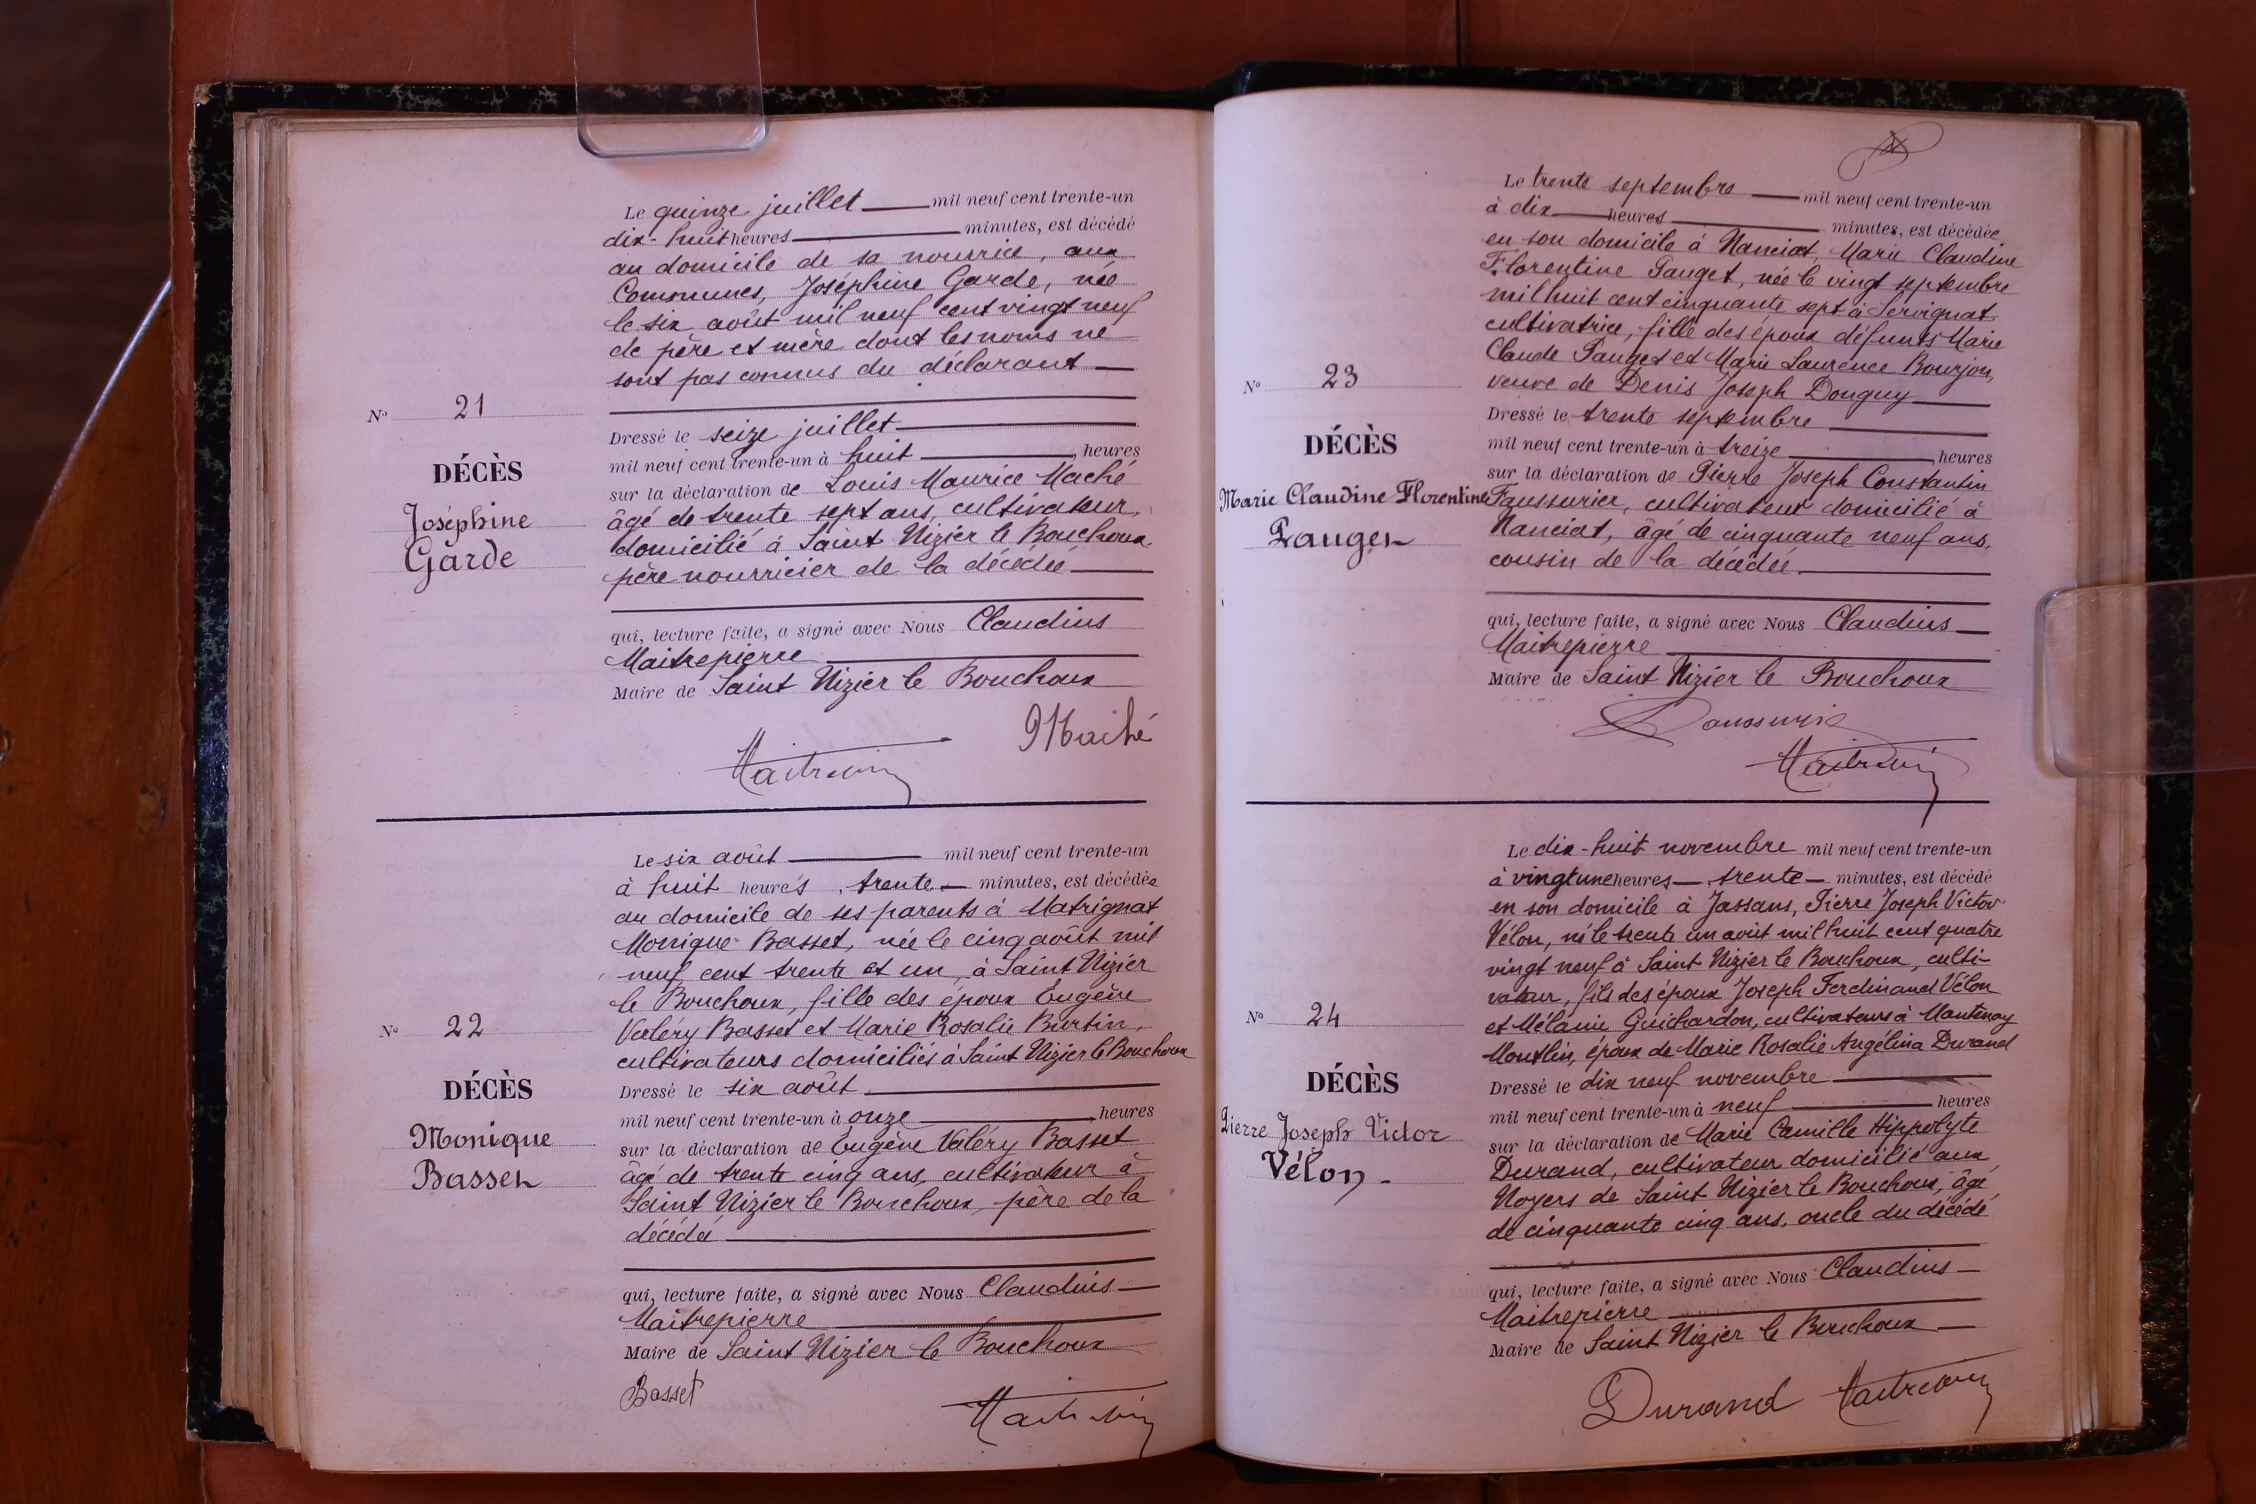 Le quinze juillet mil neuf cent trente-un
dix-huit heures minutes, est décédé
au domicile de sa nourrice, aux
Communes, Joséphine Garde, née
le six août mil neuf cent vingt neuf
de père et mère dont les noms ne
sont pas connus du déclarant
N° 21
DÉCÈS
Joséphine
Garde
Dressé le seize juillet
mil neuf cent trente-un à huit, heures
sur la déclaration de Louis Maurice Maché
âgé de trente sept ans, cultivateur,
domicilié à Saint Nizier le Bouchoux
père nourricier de la décédée
qui, lecture faite, a signé avec Nous Claudius
Maitrepierre
Maire de Saint Nizier le Bouchoux
Maché
Le six août mil neuf cent trente-un
à huit heures, trente minutes, est décédée
au domicile de ses parents à Matrignat
Monique Basset, née le cinq août mil
neuf cent trente et un, à Saint Nizier
le Bouchoux, fille des époux Eugène
Valéry Basset et Marie Rosalie Burtin,
cultivateurs domiciliés à Saint Nizier le Bouchoux
N° 22
DÉCÈS
Monique
Basset
Dressé le six août
mil neuf cent trente-un à onze, heures
sur la déclaration de Eugène Valéry Basset
âgé de trente cinq ans, cultivateur à
Saint Nizier le Bouchoux, père de la
décédée
qui, lecture faite, a signé avec Nous Claudius
Maitrepierre
Maire de Saint Nizier le Bouchoux
Basset
Le trente septembre mil neuf cent trente-un
à dix heures minutes, est décédée
en son domicile à Nanciat, Marie Claudine
Florentine Pauget, née le vingt septembre
mil huit cent cinquante sept à Servignat
cultivatrice, fille des époux défunts Marie
Claude Pauget et Marie Laurence Bourjon,
veuve de Denis Joseph Douguy
N° 23
DÉCÈS
Marie Claudine Florentine
Pauget
Dressé le trente septembre
mil neuf cent trente-un à treize, heures
sur la déclaration de Pierre Joseph Constantin
Faussurier, cultivateur domicilié à
Nanciat, âgé de cinquante neuf ans,
cousin de la décédée
qui, lecture faite, a signé avec Nous Claudius
Maitrepierre
Maire de Saint Nizier le Bouchoux
Le dix-huit novembre mil neuf cent trente-un
à vingt une heures, trente minutes, est décédé
en son domicile à Jassans, Pierre Joseph Victor
Vélon, né le trente un août mil huit cent quatre
vingt neuf à Saint Nizier le Bouchoux, culti-
vateur, fils des époux Joseph Ferdinand Vélon
et Mélanie Guichardon, cultivateurs à Mantenay
Montlin, époux de Marie Rosalie Angélina Durand
N° 24
DÉCÈS
Pierre Joseph Victor
Vélon
Dressé le dix neuf novembre
mil neuf cent trente-un à neuf heures
sur la déclaration de Marie Camille Hippolyte
Durand, cultivateur domicilié aux
Noyers de Saint Nizier le Bouchoux, âgé
de cinquante cinq ans, oncle du décédé
qui, lecture faite, a signé avec Nous Claudius
Maitrepierre
Maire de Saint Nizier le Bouchoux
Durand